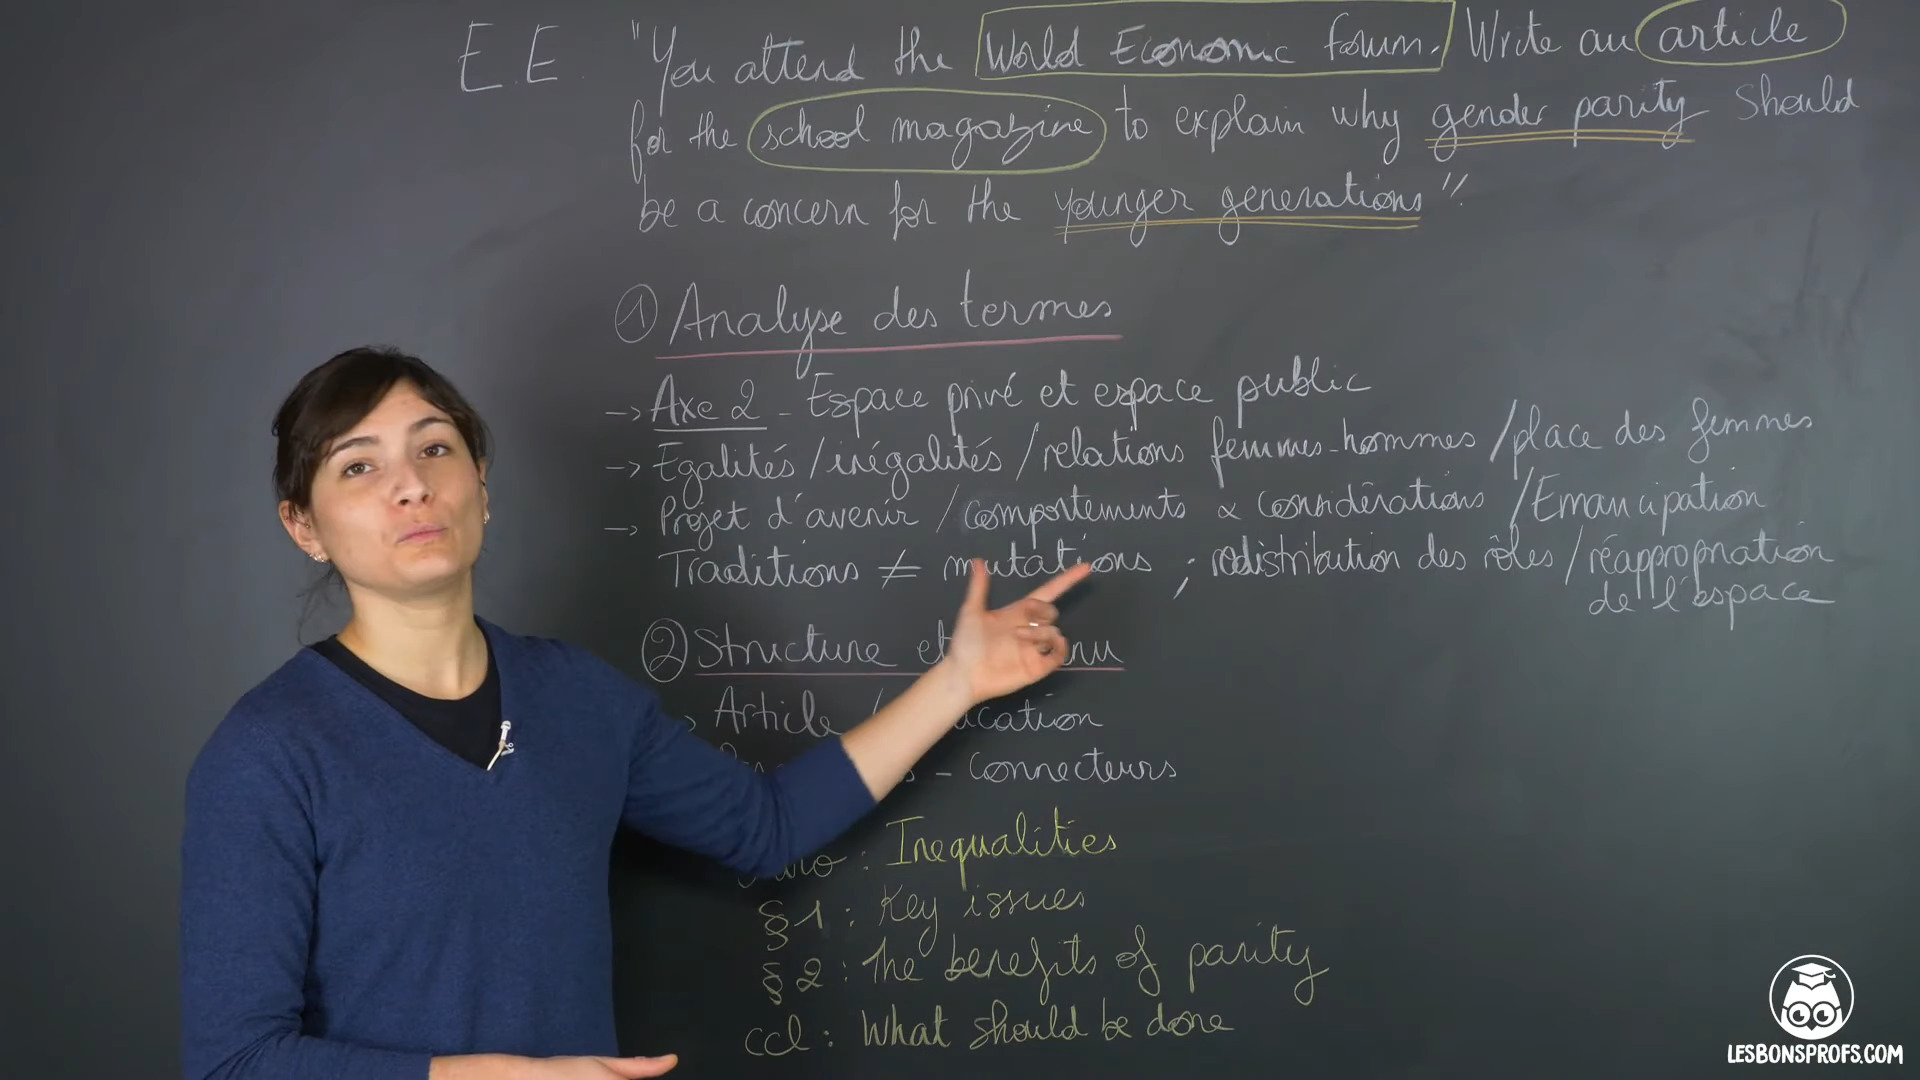 E.E "You attend the World Economic forum. Write an article
for the school magazine to explain why gender parity should
be a concern for the younger generations"
① Analyse des termes
-> Axe 2 - Espace privé et espace public
-> Egalités / inégalités / relations femmes-hommes / place des femmes
-> Projet d'avenir / comportements & considérations / Emancipation
Traditions ≠ mutations ; redistribution des rôles / réappropriation
de l'espace
② Structure et
Article /
- Connecteurs
: Inequalities
§1 : Key issues
§2 : The benefits of parity
ccl : What should be done
LESBONSPROFS.COM